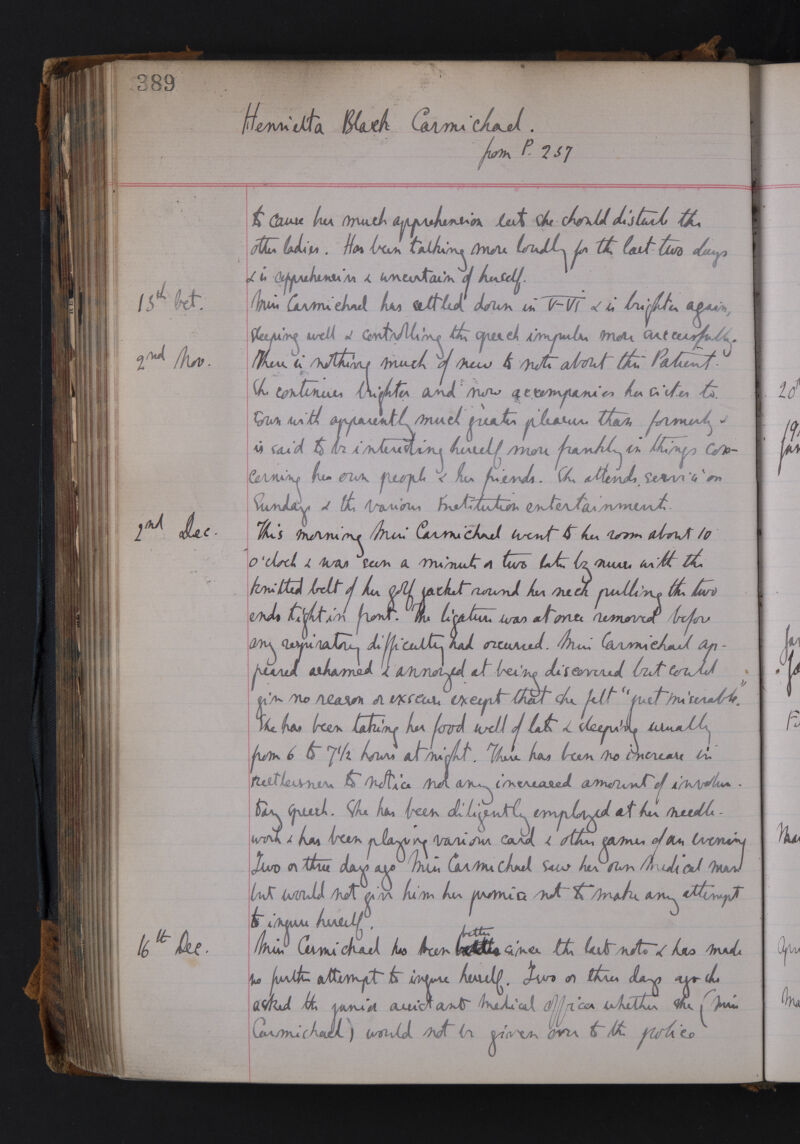 389
Henrietta Black Carmichael.
from P. 257
to cause her much apprehension lest she should disturb the
other ladies. Has been talking more loudly for the last two days
& is apprehensive & uncertain of herself.
15th Oct. Miss Carmichael has settled down in V-VI & is brighter again,
sleeping well & controlling the speech impulse more successfully.
2nd Nov. There is nothing much of new to note about this Patient.
She continues brighter and now accompanies her sister to
town with apparently much greater pleasure than formerly &
is said to be interesting herself more frankly in things con-
cerning her own people & her friends. She attends service on
Sundays & the various Institution entertainments.
2nd Dec. This morning Miss Carmichael went to her room about 10
o'clock & was seen a minute or two later by nurse with the
knitted belt of her golf jacket round her neck pulling the two
ends tight in front. The ligature was at once removed before
any respiratory difficulty had occurred. Miss Carmichael ap-
peared ashamed & annoyed at being discovered but could
give no reason or excuse except that she felt "just miserable."
She has been taking her food well of late & sleeping usually
from 6 to 7½ hours at night. There has been no increase in
restlessness to notice nor any increased amount of involun-
tary speech. She has been diligently employed at her needle-
work & has been playing various card & other games of an evening
Two or three days ago Miss Carmichael saw her own medical man
but would not give him her promise not to make any attempt
to injure herself.
better
16th Dec. Miss Carmichael has been since the last note & has made
no further attempt to injure herself. Two or three days ago she
asked the junior assistant medical officer whether she (Miss
Carmichael) would not be given over to the police
20
19
Jan